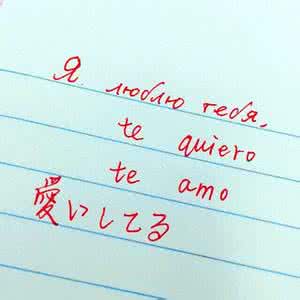 Я люблю тебя,
te quiero
te amo
愛してる